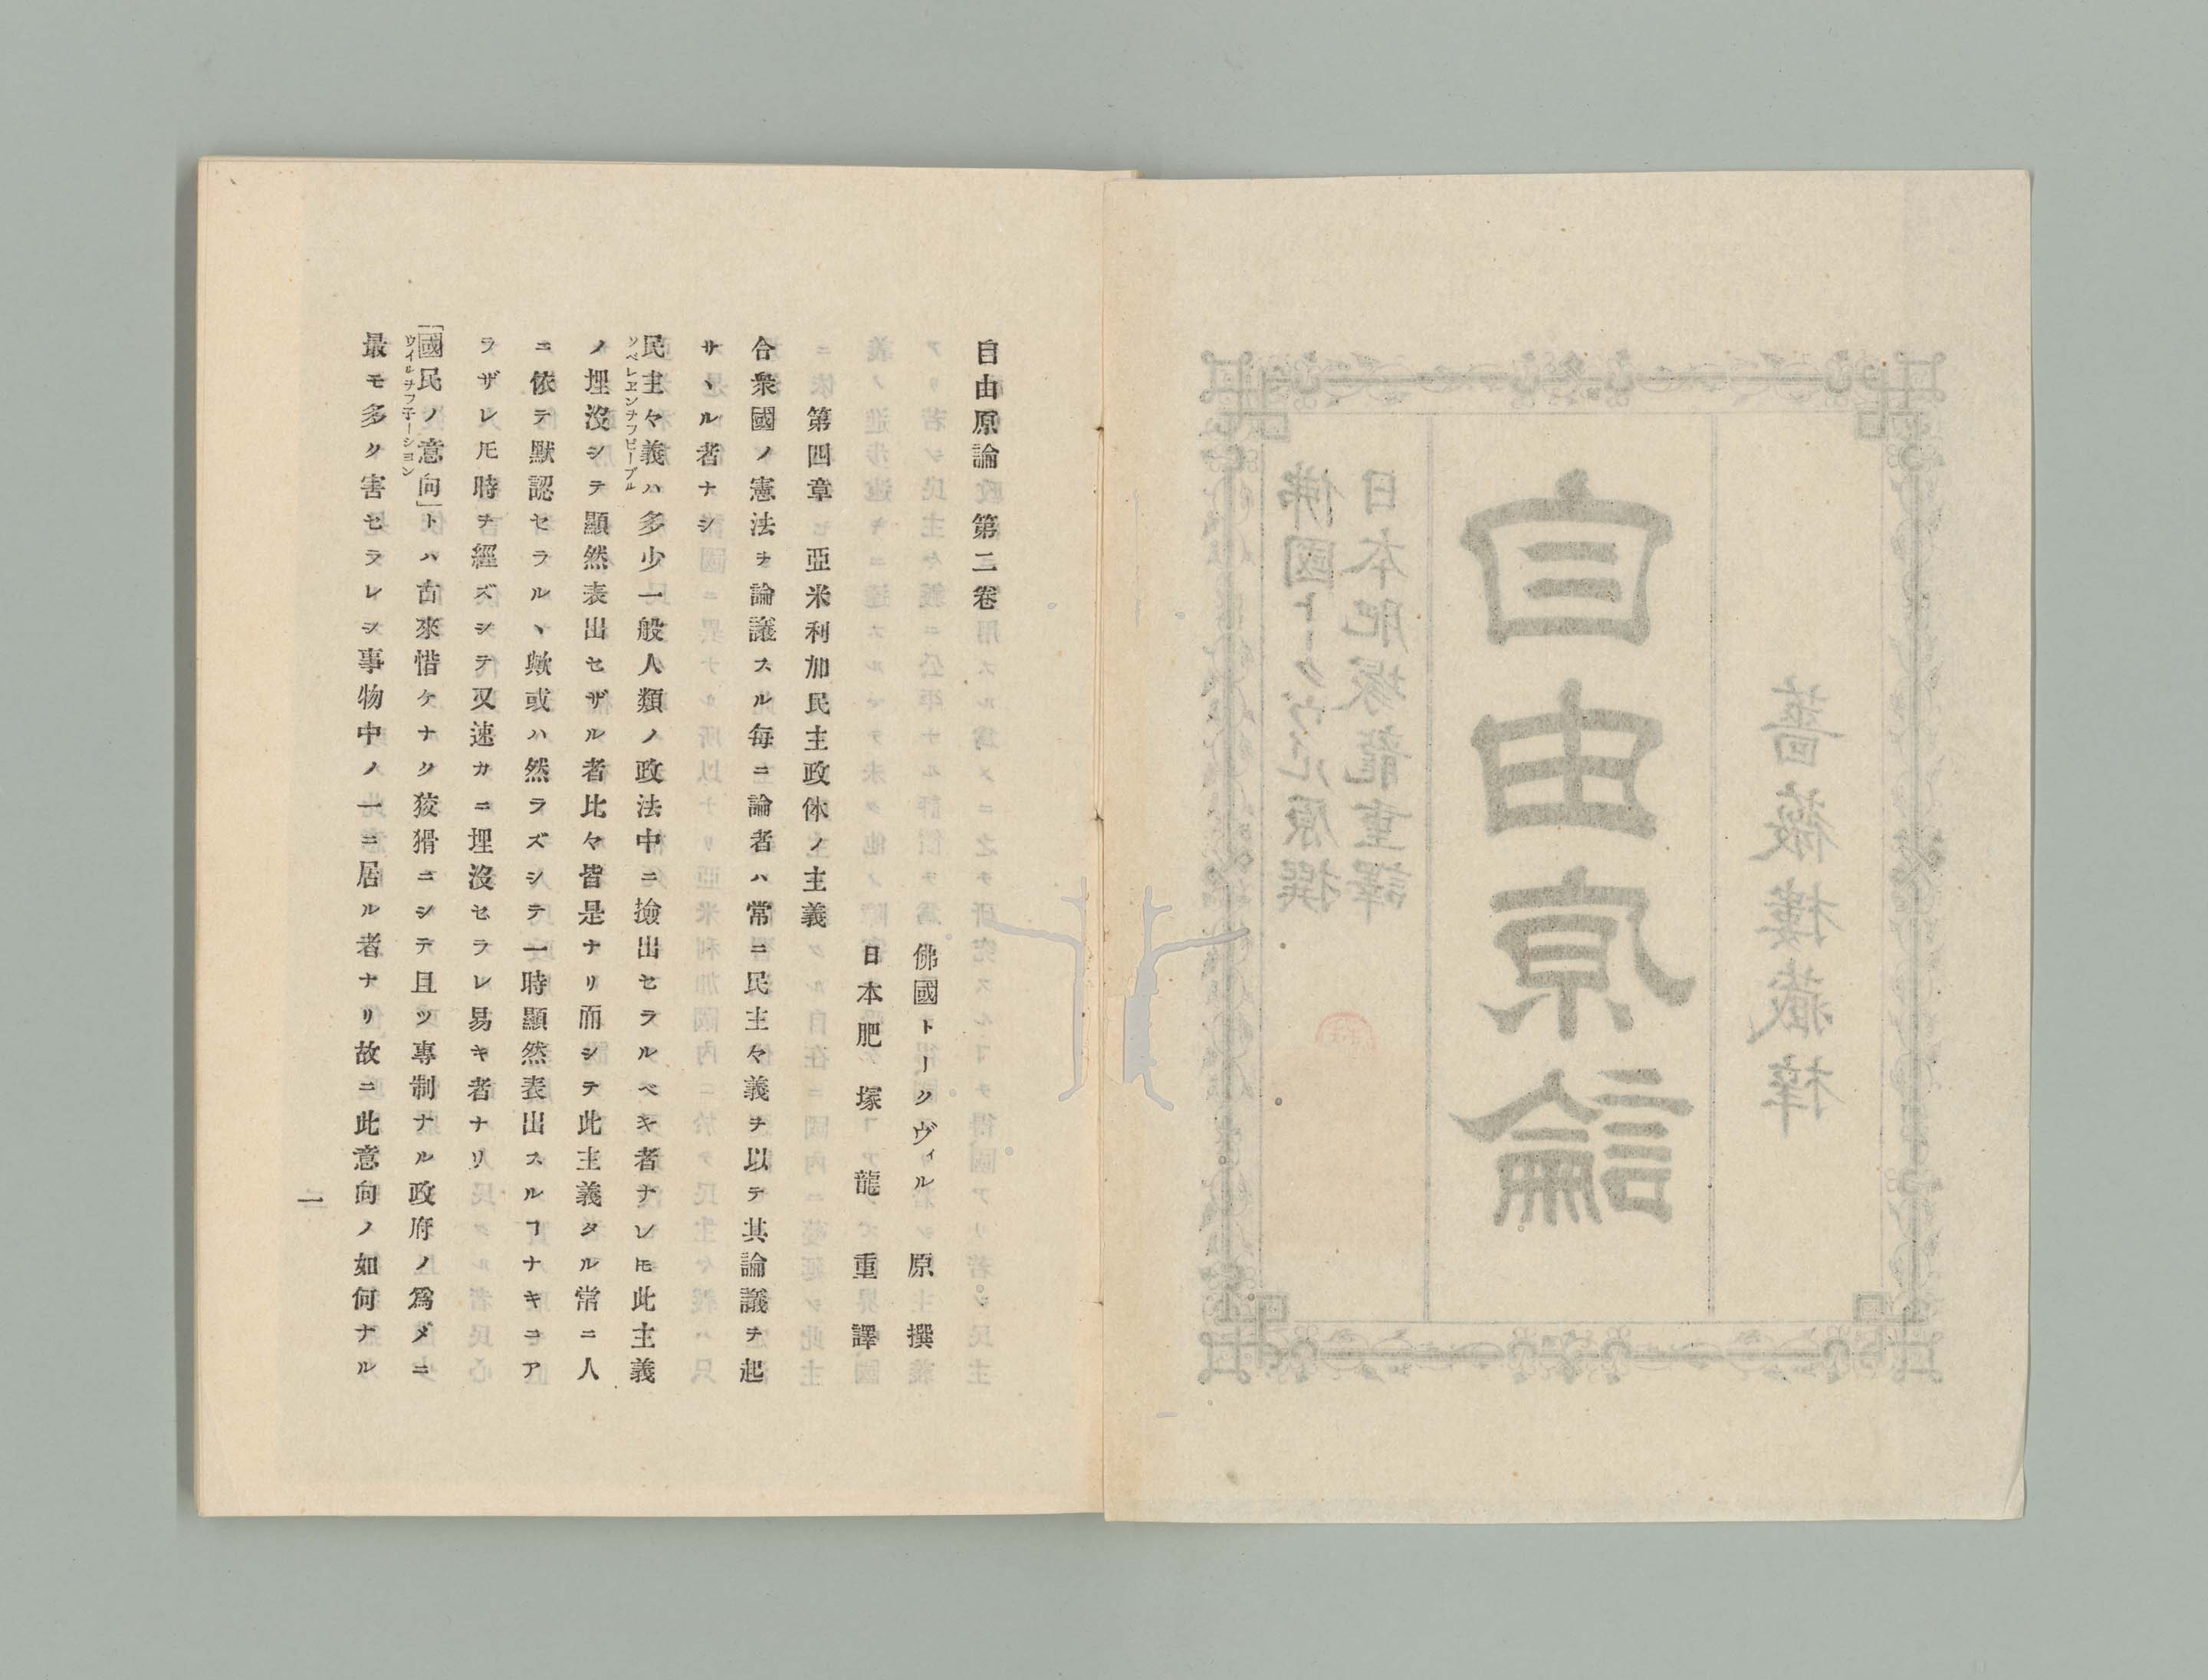 自由原論
薔薇樓藏梓
日本肥塚龍重譯
佛國トークヴィル原撰
自由原論第二卷
佛國トークヴィル原撰
日本肥塚龍重譯
第四章 亞米利加民主政体ノ主義
合衆國ノ憲法ヲ論議スル毎ニ論者ハ常ニ民主々義ヲ以テ其論議ヲ起
サヽル者ナシ
民主々義ハ多少一般人類ノ政法中ニ撿出セラルベキ者ナレ𪜈此主義
ソベレエンチフピープル
ノ埋沒シテ顯然表出セザル者比々皆是ナリ而シテ此主義タル常ニ人
ニ依テ默認セラルヽ歟或ハ然ラズシテ一時顯然表出スルヿナキニア
ラザレ𪜈時ヲ經ズシテ又速カニ埋沒セラレ易キ者ナリ
「國民ノ意向」トハ古來惜ケナク狡猾ニシテ且ツ專制ナル政府ノ爲メニ
ウイルヲフ子ーション
最モ多ク害セラレシ事物中ノ一ニ居ル者ナリ故ニ此意向ノ如何ナル
一